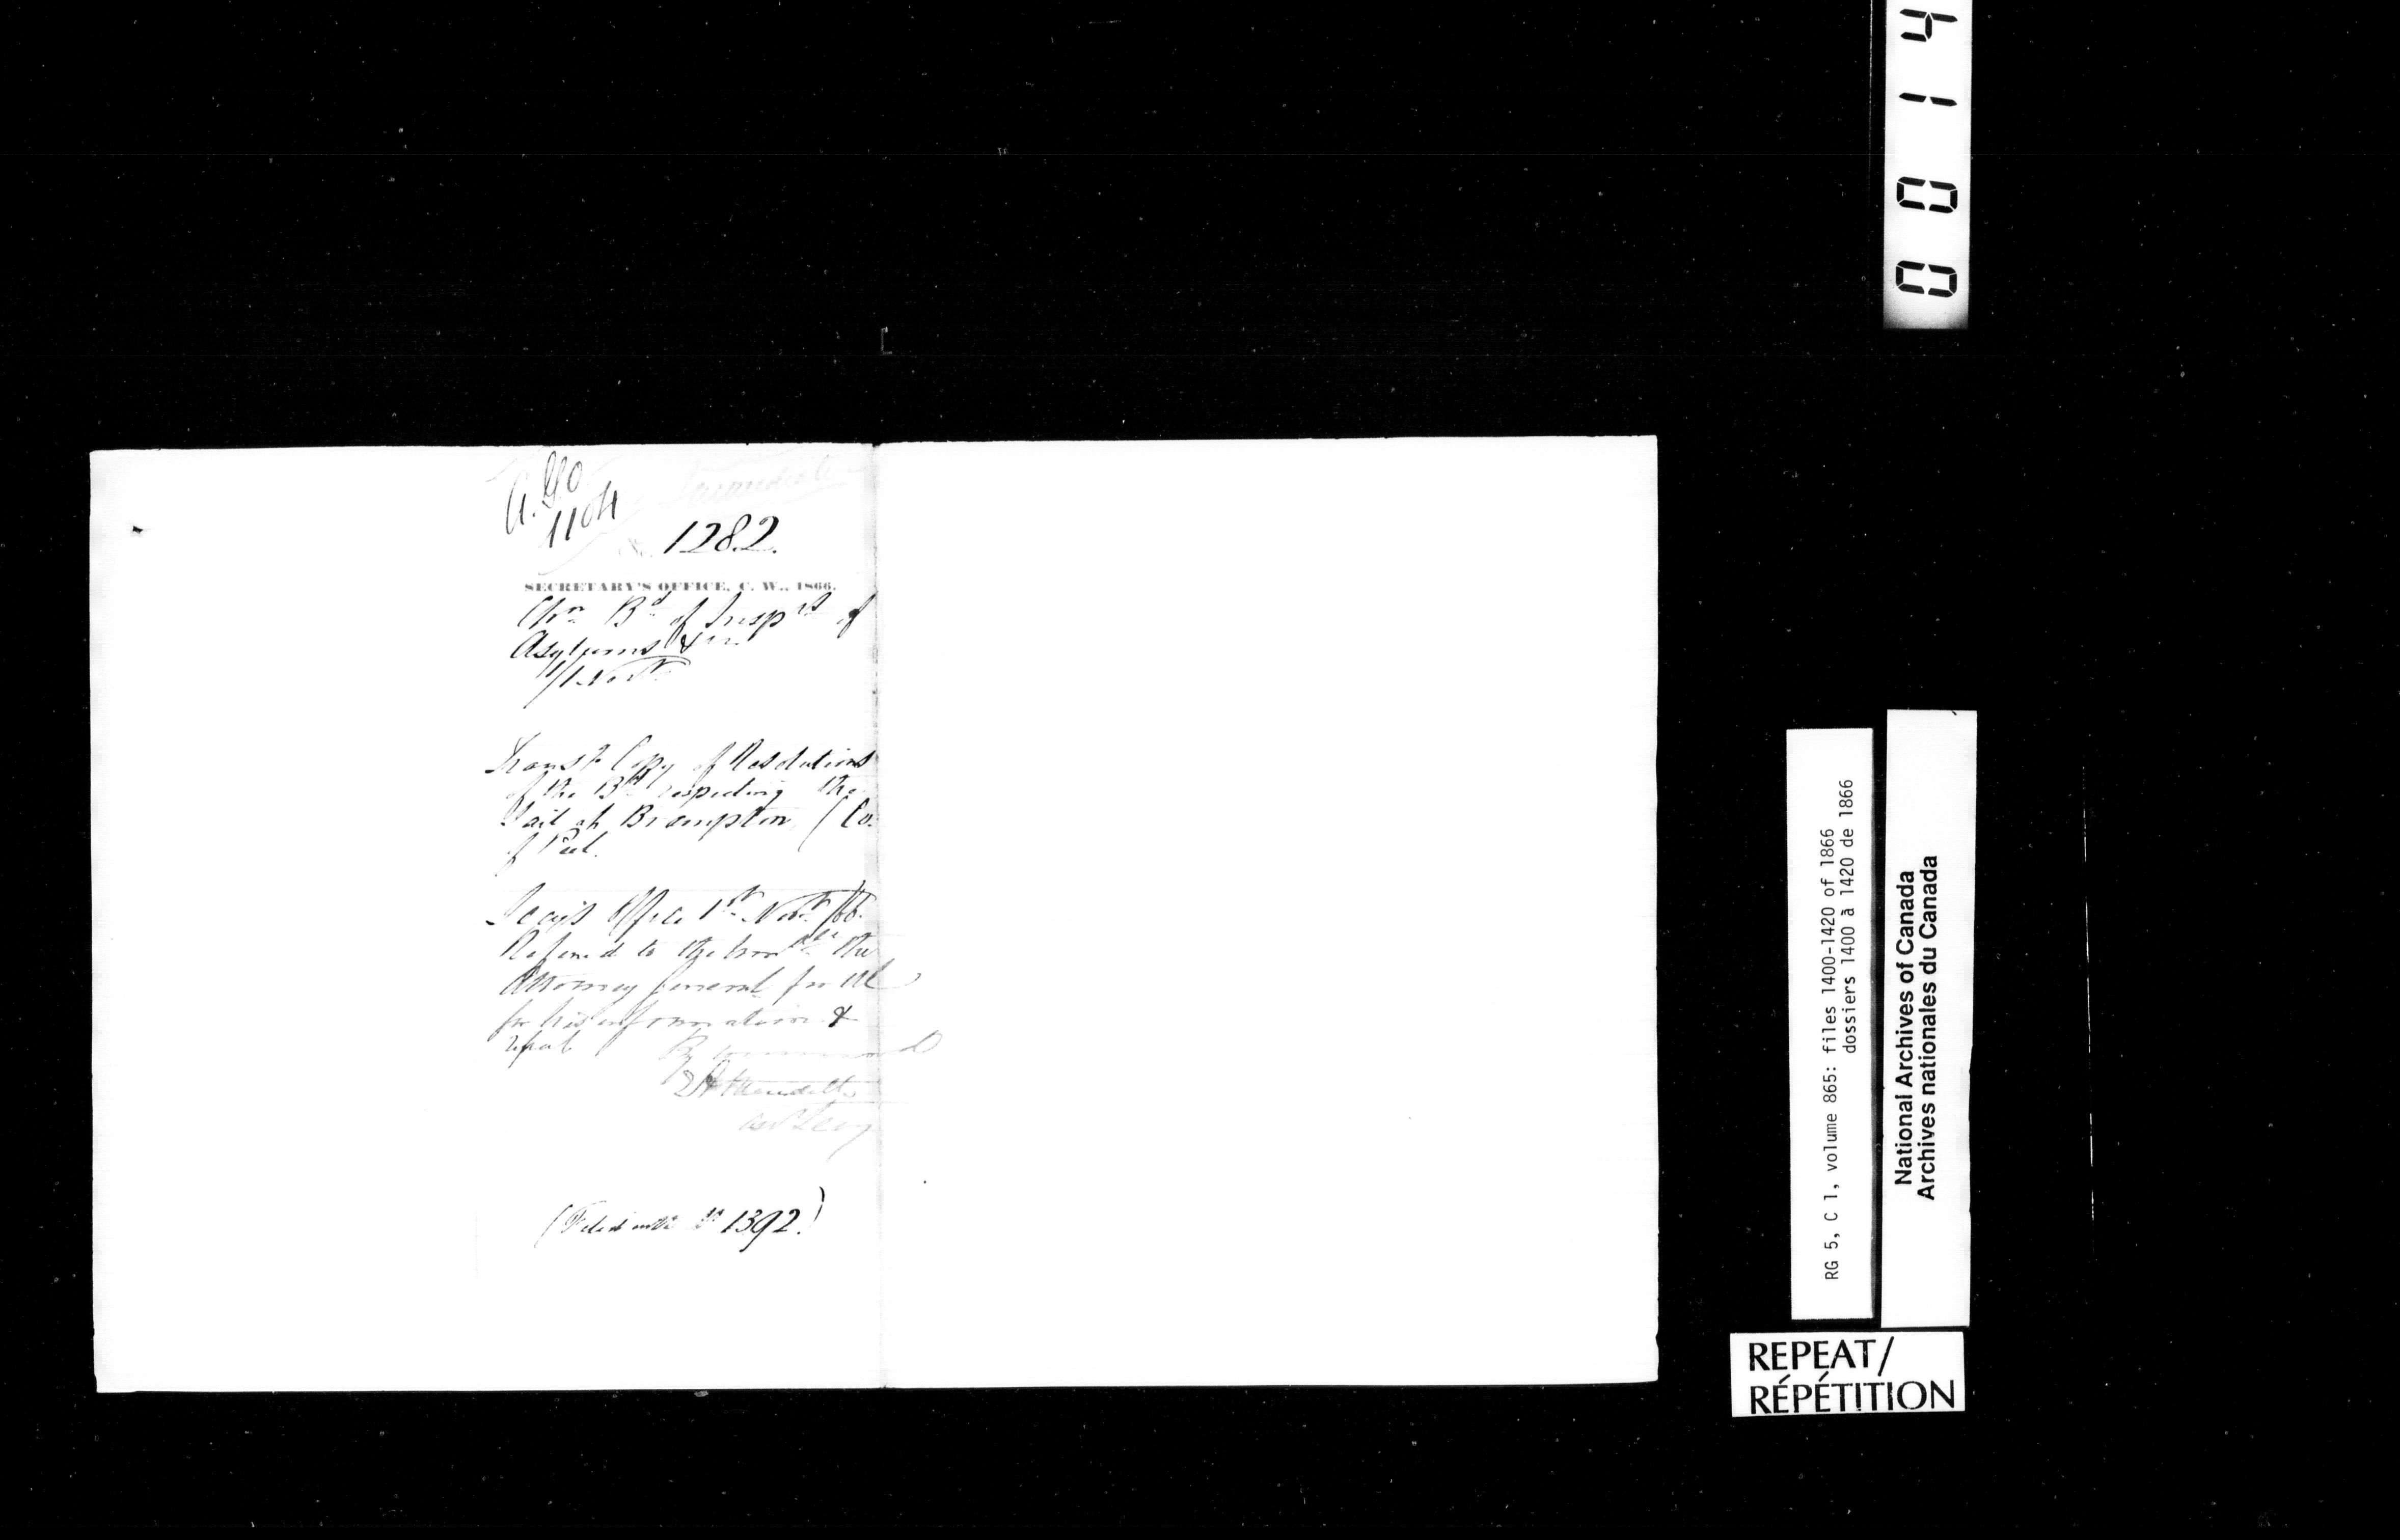 Immediate
A.
1104
No. 1282.
SECRETARY'S OFFICE, C. W., 1866.
Chn Bd of Insprs of
Asylums &c
1 Novr
Transt Copy of Resolutions
of the Bd respecting the
Jail at Brampton (Co.
of Peel.
Secy's Office 1st Novr /66.
Referred to the Honble the
Attorney General for UC
for his information &
report
By command
Asst Secy
(Filed with No 1392.)
0 0 1 4
RG 5, C 1, volume 865: files 1400-1420 of 1866
dossiers 1400 à 1420 de 1866
National Archives of Canada
Archives nationales du Canada
REPEAT/
RÉPÉTITION